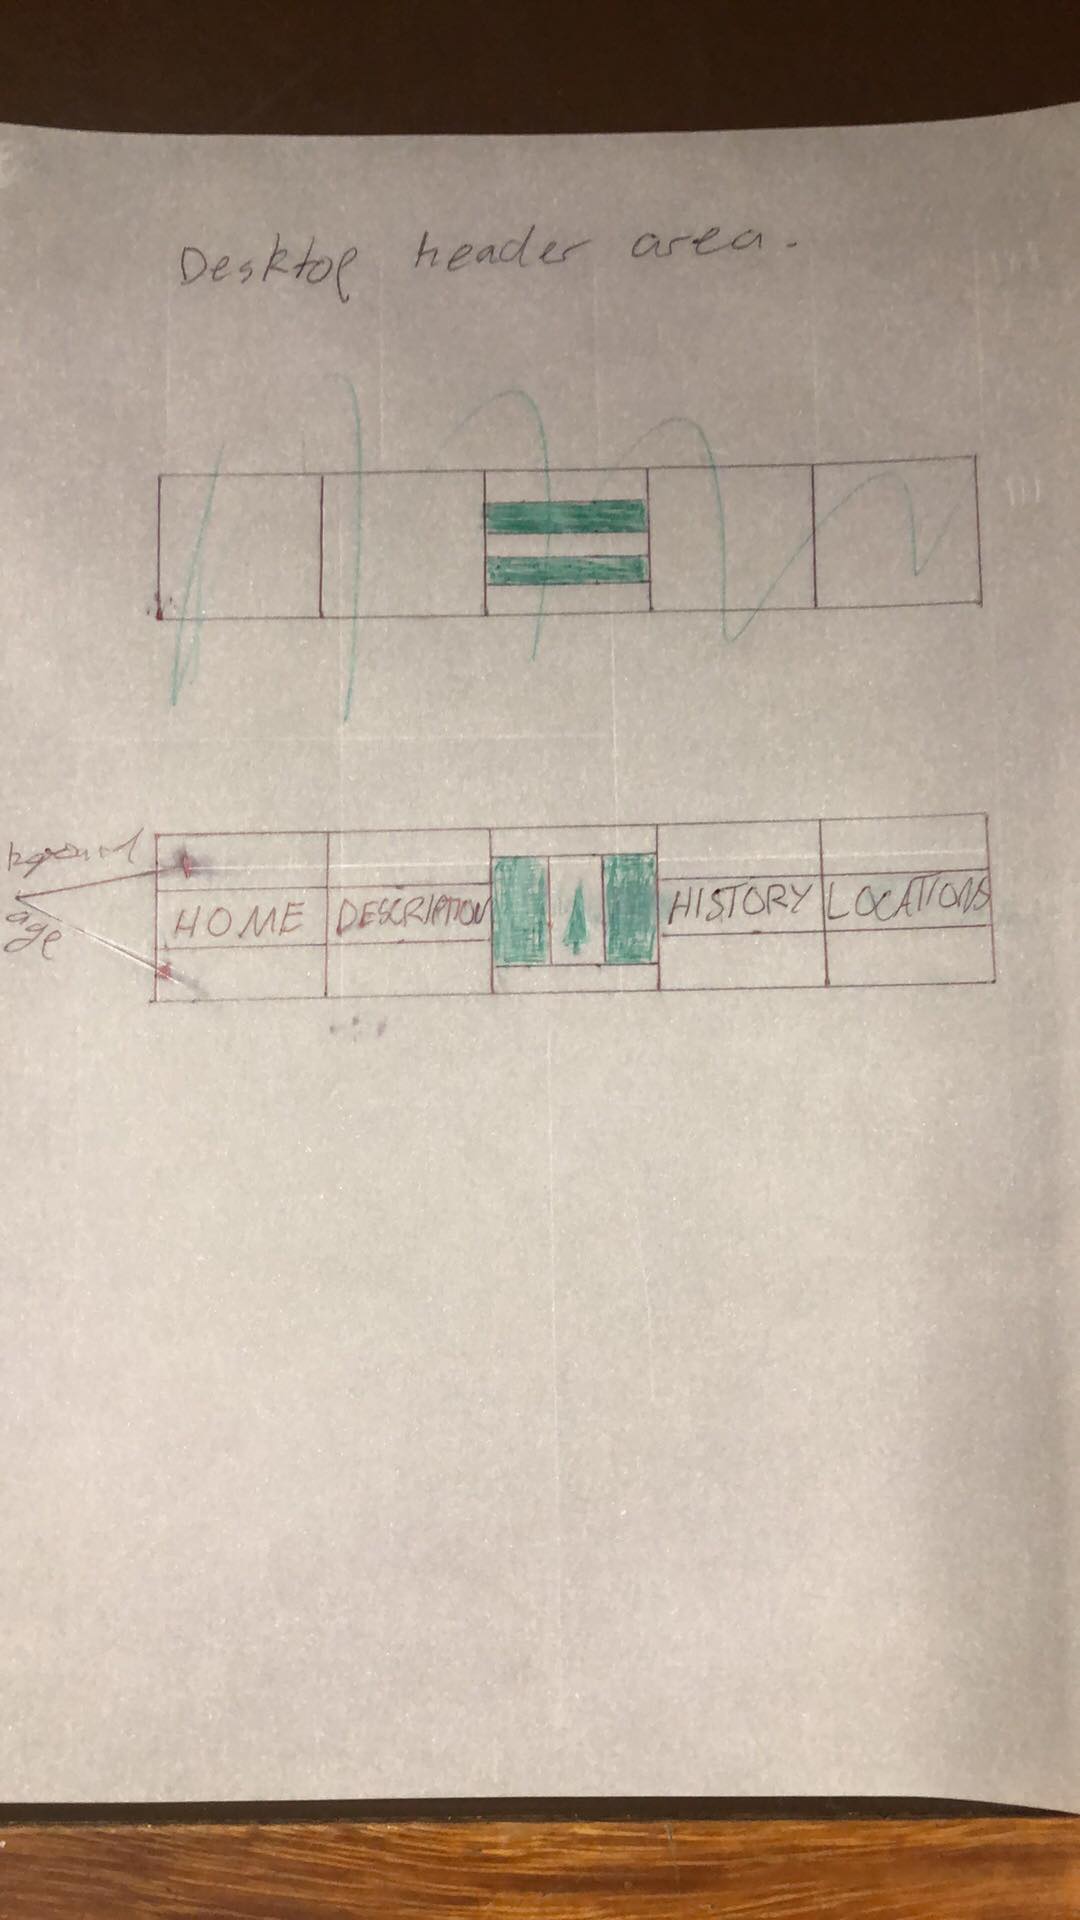 Desktop header area.
HOME DESCRIPTION HISTORY LOCATIONS